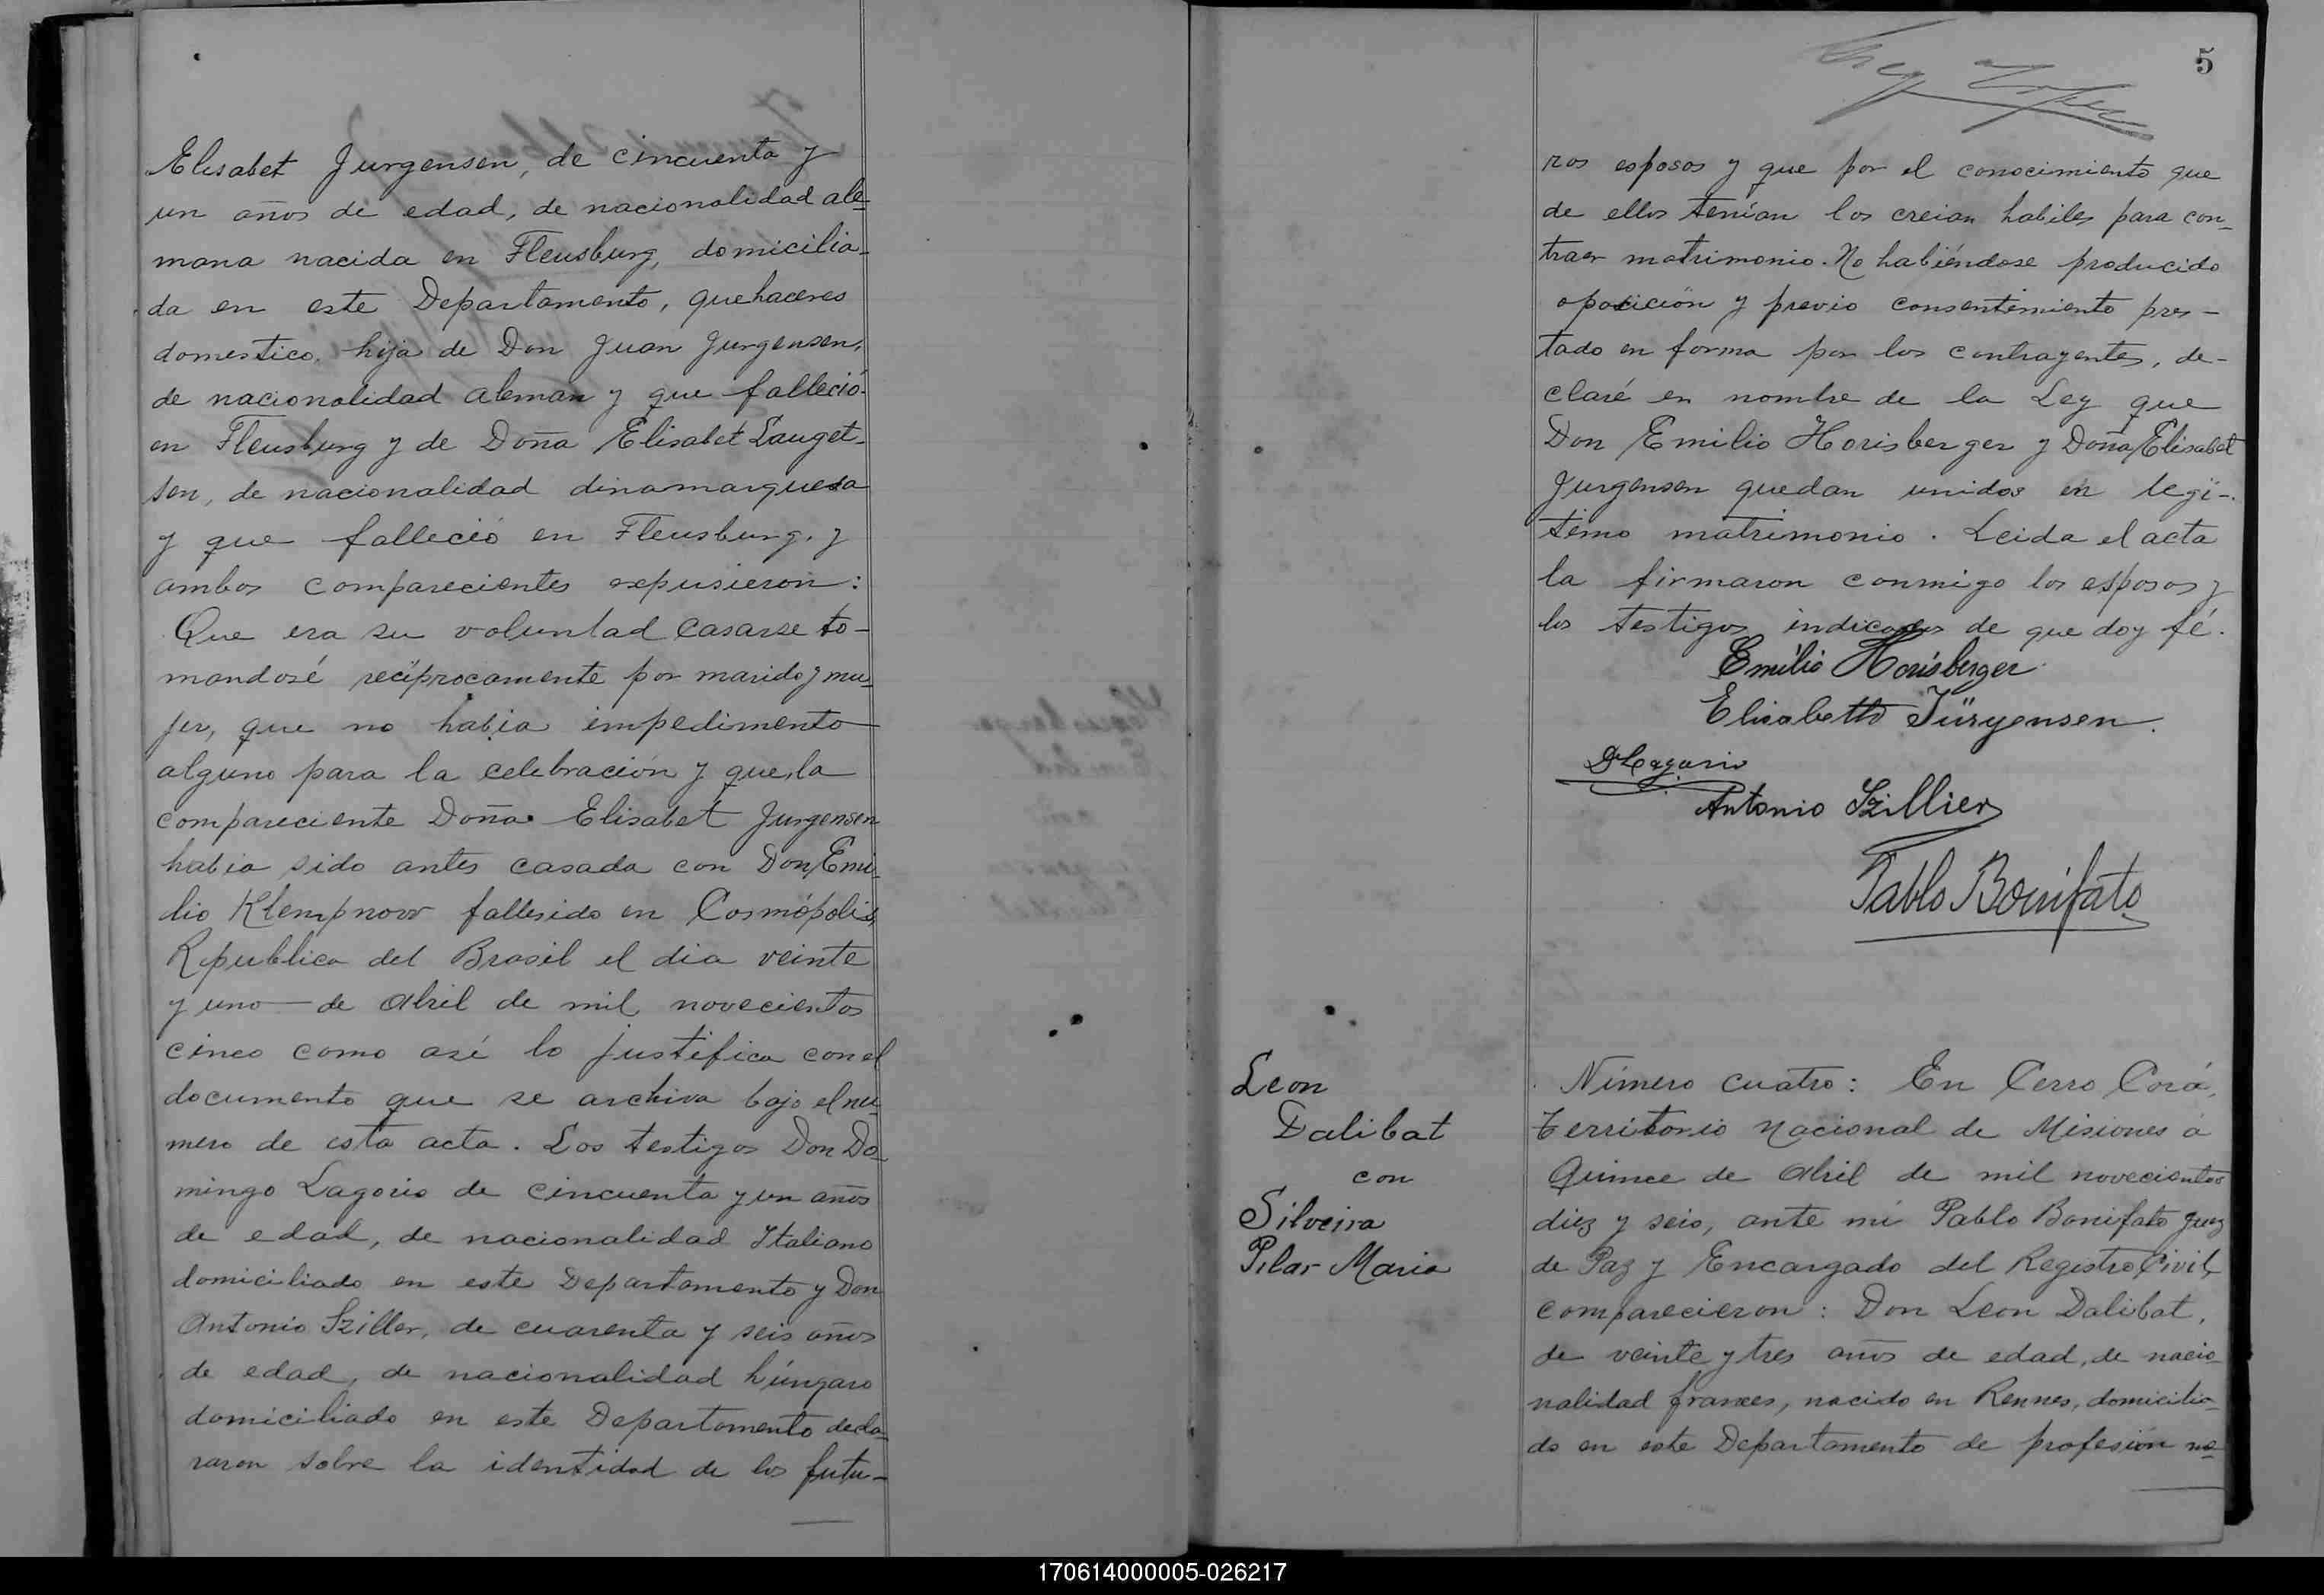 Elisabet Jurgensen, de cincuenta y
un años de edad, de nacionalidad ale-
mana nacida en Fleusburg, domicilia-
da en este Departamento, quehaceres
domestico, hija de Don Juan Jurgensen,
de nacionalidad aleman y que falleció
en Fleusburg y de Doña Elisabet Lauget-
sen, de nacionalidad dinamarquesa
y que falleció en Fleusburg, y
ambos comparecientes expusieron:
Que era su voluntad casarse to-
mandosé reciprocamente por marido y mu-
jer, que no habia impedimento
alguno para la celebración y que la
compareciente Doña Elisabet Jurgensen
habia sido antes casada con Don Emi-
lio Klempnow fallesido en Cosmópolis,
Republica del Brasil el dia veinte
y uno de Abril de mil novecientos
cinco como asé lo justifica con el
documento que se archiva bajo el nu-
mero de esta acta. Los testigos Don Do-
mingo Lagorio de cincuenta y un años
de edad, de nacionalidad Italiano
domiciliado en este Departamento y Don
Antonio Sziller, de cuarenta y seis años
de edad, de nacionalidad húngaro
domiciliado en este Departamento decla-
raron sobre la identidad de los futu-
5
ros esposos y que por el conocimiento que
de ellos tenían los creian habiles para con-
traer matrimonio. No habiéndose producido
oposición y previo consentimiento pres-
tado en forma por los contrayentes, de-
claré en nombre de la Ley que
Don Emilio Horisberger y Doña Elisabet
Jurgensen quedan unidos en legi-
timo matrimonio. Leida el acta
la firmaron conmigo los esposos y
los testigos indicados de que doy fé.
Emilio Horisberger
Elisabetth Jürgensen.
D Lagorio
Antonio Szillier
Pablo Bonifato
Leon
Dalibat
con
Silveira
Pilar Maria
Número cuatro: En Cerro Corá,
Territorio Nacional de Misiones á
Quince de Abril de mil novecientos
diez y seis, ante mi Pablo Bonifato Juez
de Paz y Encargado del Registro Civil,
comparecieron: Don Leon Dalibat,
de veinte y tres años de edad, de nacio-
nalidad frances, nacido en Rennes, domicilia-
do en este Departamento de profesión ne-
170614000005-026217